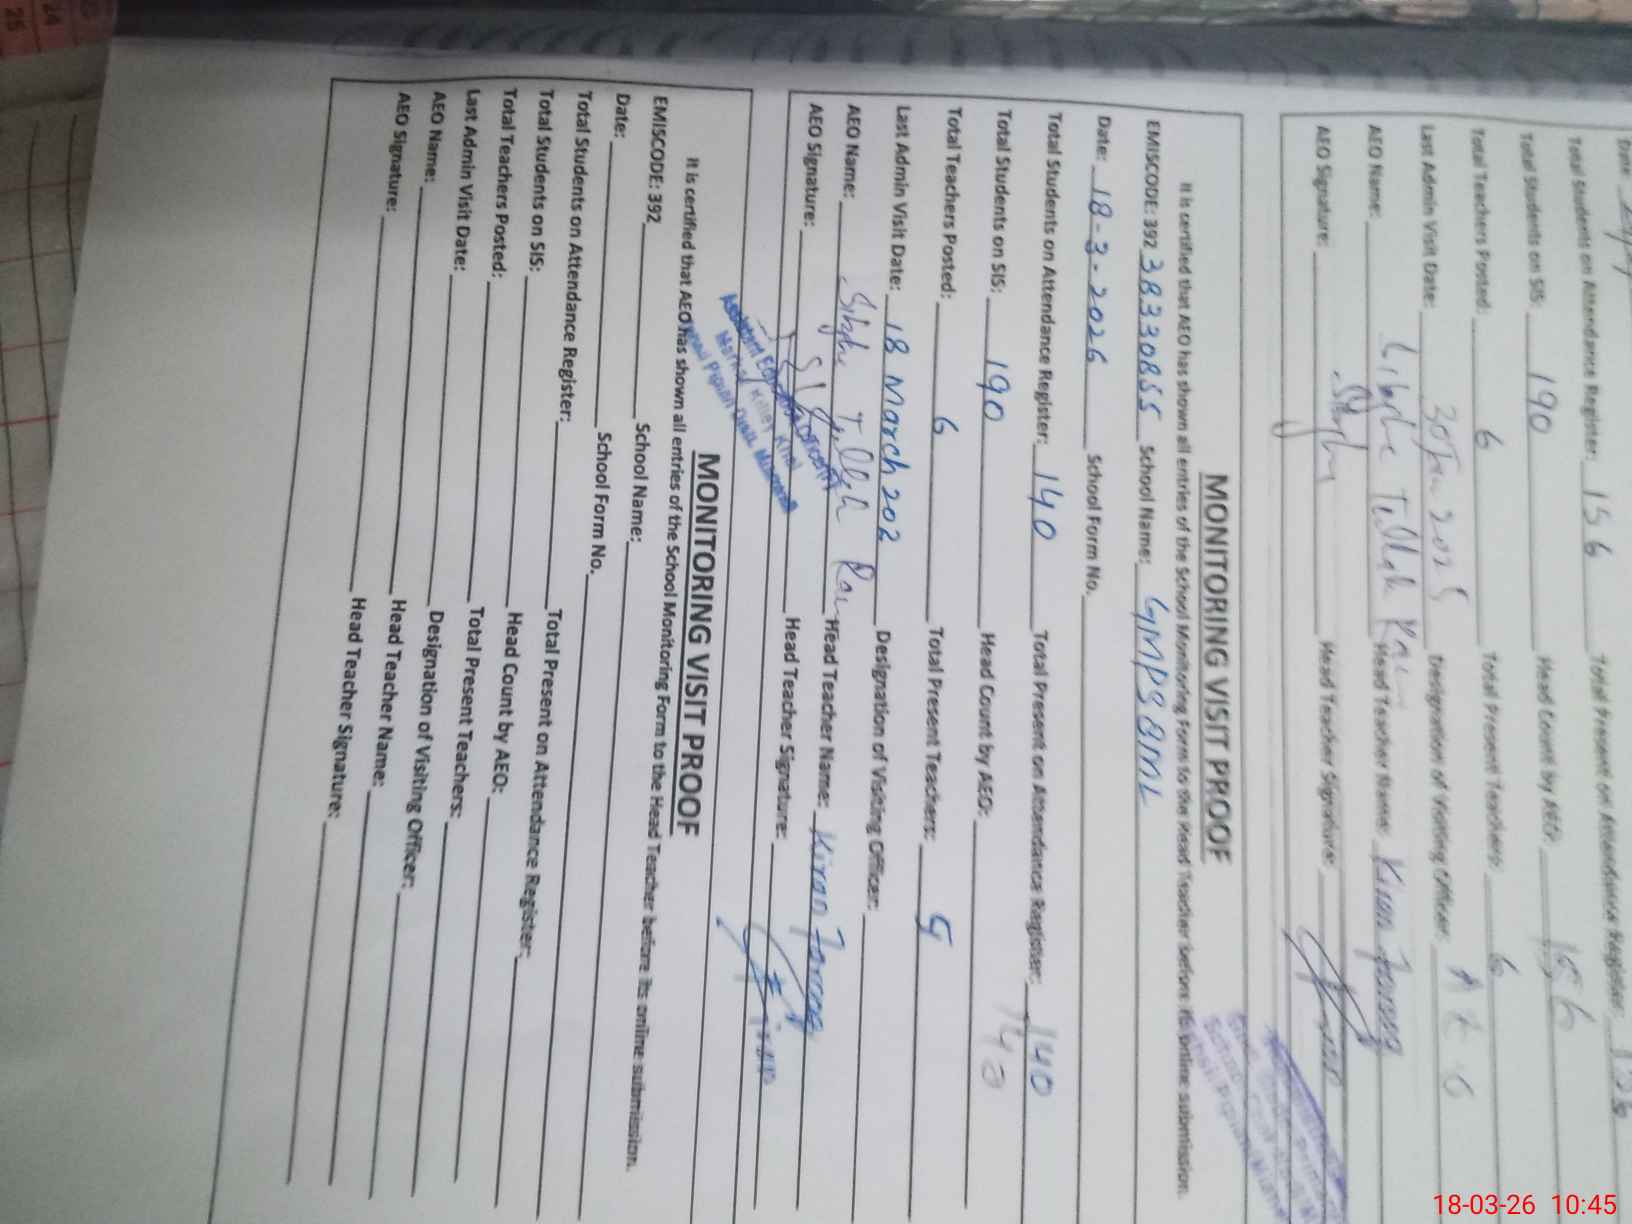 Total Students on Attendance Register: 156 Total Present on Attendance Register: 156
Total Students on SIS: 190 Head Count by AEO: 156
Total Teachers Posted: 6 Total Present Teachers: 6
Last Admin Visit Date: 2025 Designation of Visiting Officer:
AEO Name: Head Teacher Name: Kiran
AEO Signature: Head Teacher Signature:
MONITORING VISIT PROOF
It is certified that AEO has shown all entries of the School Monitoring Form to the Head Teacher before its online submission.
EMISCODE: 392 38330855 School Name: GMPS 8ML
Date: 18-3-2026 School Form No.
Total Students on Attendance Register: 140 Total Present on Attendance Register: 140
Total Students on SIS: 190 Head Count by AEO: 140
Total Teachers Posted: 6 Total Present Teachers: 5
Last Admin Visit Date: 18 March 202 Designation of Visiting Officer:
AEO Name: Head Teacher Name: Kiran
AEO Signature: Head Teacher Signature:
MONITORING VISIT PROOF
It is certified that AEO has shown all entries of the School Monitoring Form to the Head Teacher before its online submission.
EMISCODE: 392 School Name:
Date: School Form No.
Total Students on Attendance Register: Total Present on Attendance Register:
Total Students on SIS: Head Count by AEO:
Total Teachers Posted: Total Present Teachers:
Last Admin Visit Date: Designation of Visiting Officer:
AEO Name: Head Teacher Name:
AEO Signature: Head Teacher Signature:
24
25
18-03-26 10:45